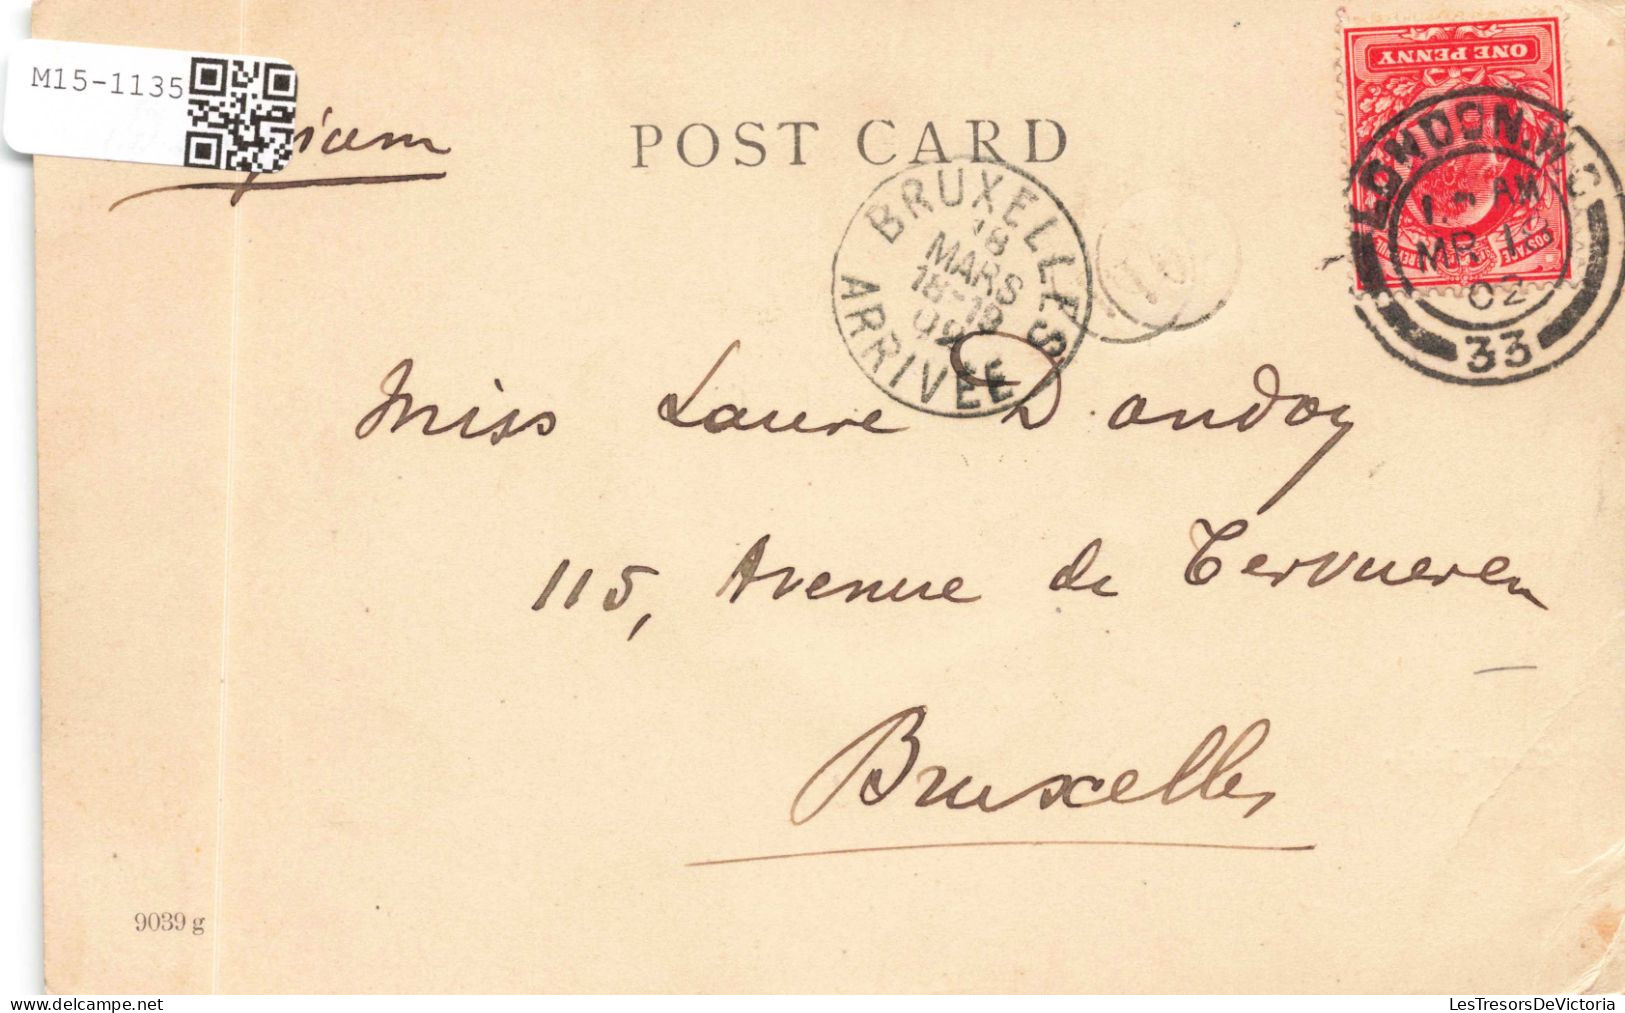 M15-1135
POST CARD
ONE PENNY
LONDON. W.C
AM
MR 18
02
33
BRUXELLES
18
MARS
18-19
02
ARRIVÉE
Miss Laure Dandoy
115, Avenue de Tervueren
Bruxelles
9039 g
LesTresorsDeVictoria